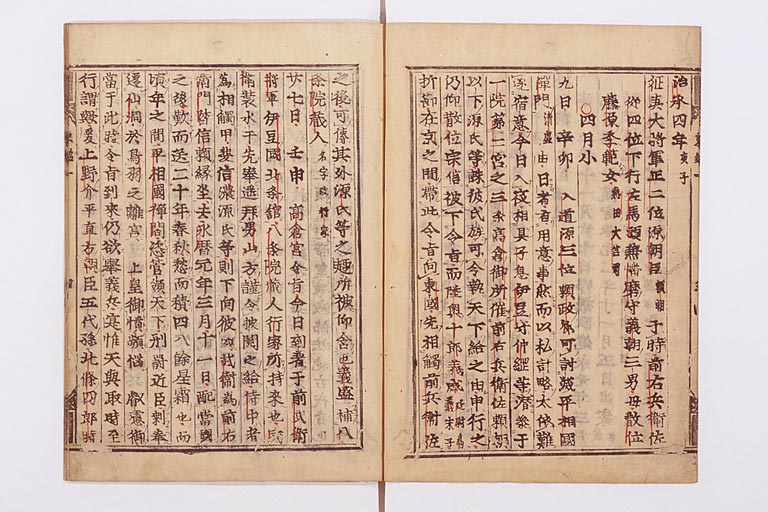 治承四年 庚子
征夷大將軍正二位源朝臣 頼朝 于時前右兵衛佐
從四位下行左馬頭兼播磨守義朝三男母散位
藤原季範女 熱田大宮司
四月小
九日 辛卯 入道源三位頼政卿可討滅平相國
禪門 清盛 由日者有用意事然而以私計略太依難
遂宿意今日入夜相具子息伊豆守仲綱等潜參于
一院第二宮之三条高倉御所催前右兵衛佐頼朝
以下源氏等誅彼氏族可令執天下給之由申行之
仍仰散位宗信被下令旨而陸奥十郎義盛 廷尉為義末子
折節在京之間帯此令旨向東國先相觸前兵衛佐
之後可傳其外源氏等之趣所被仰含也義盛補八
条院蔵人 名字改行家
廿七日 壬申 高倉宮令旨今日到着于前武衛
將軍伊豆國北条舘八条院蔵人行家所持来也武
衛装水干先奉遥拜男山方謹令披閲之給侍中者
為相觸甲斐信濃源氏等則下向彼國武衛為前右
衛門督信頼縁坐去永暦元年三月十一日配當國
之後歎而送二十年春秋愁而積四八餘星霜也而
頃年之間平相國禪閤恣管領天下刑罰近臣剰奉
遷仙洞於鳥羽之離宮 上皇御憤頻悩叡慮御
當于此時令旨到来仍欲舉義兵寔惟天與取時至
行謂歟爰上野介平直方朝臣五代孫北條四郎時